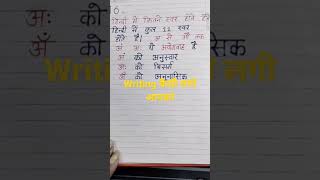 6.
हिन्दी में कितने स्वर होते हैं
हिन्दी में कुल 11 स्वर
होते हैं। अ से औ तक
अं अः ये अयोगवाह है
अं को अनुस्वार
अः को विसर्ग
अँ को अनुनासिक
Writing कैसी लगी
आपको